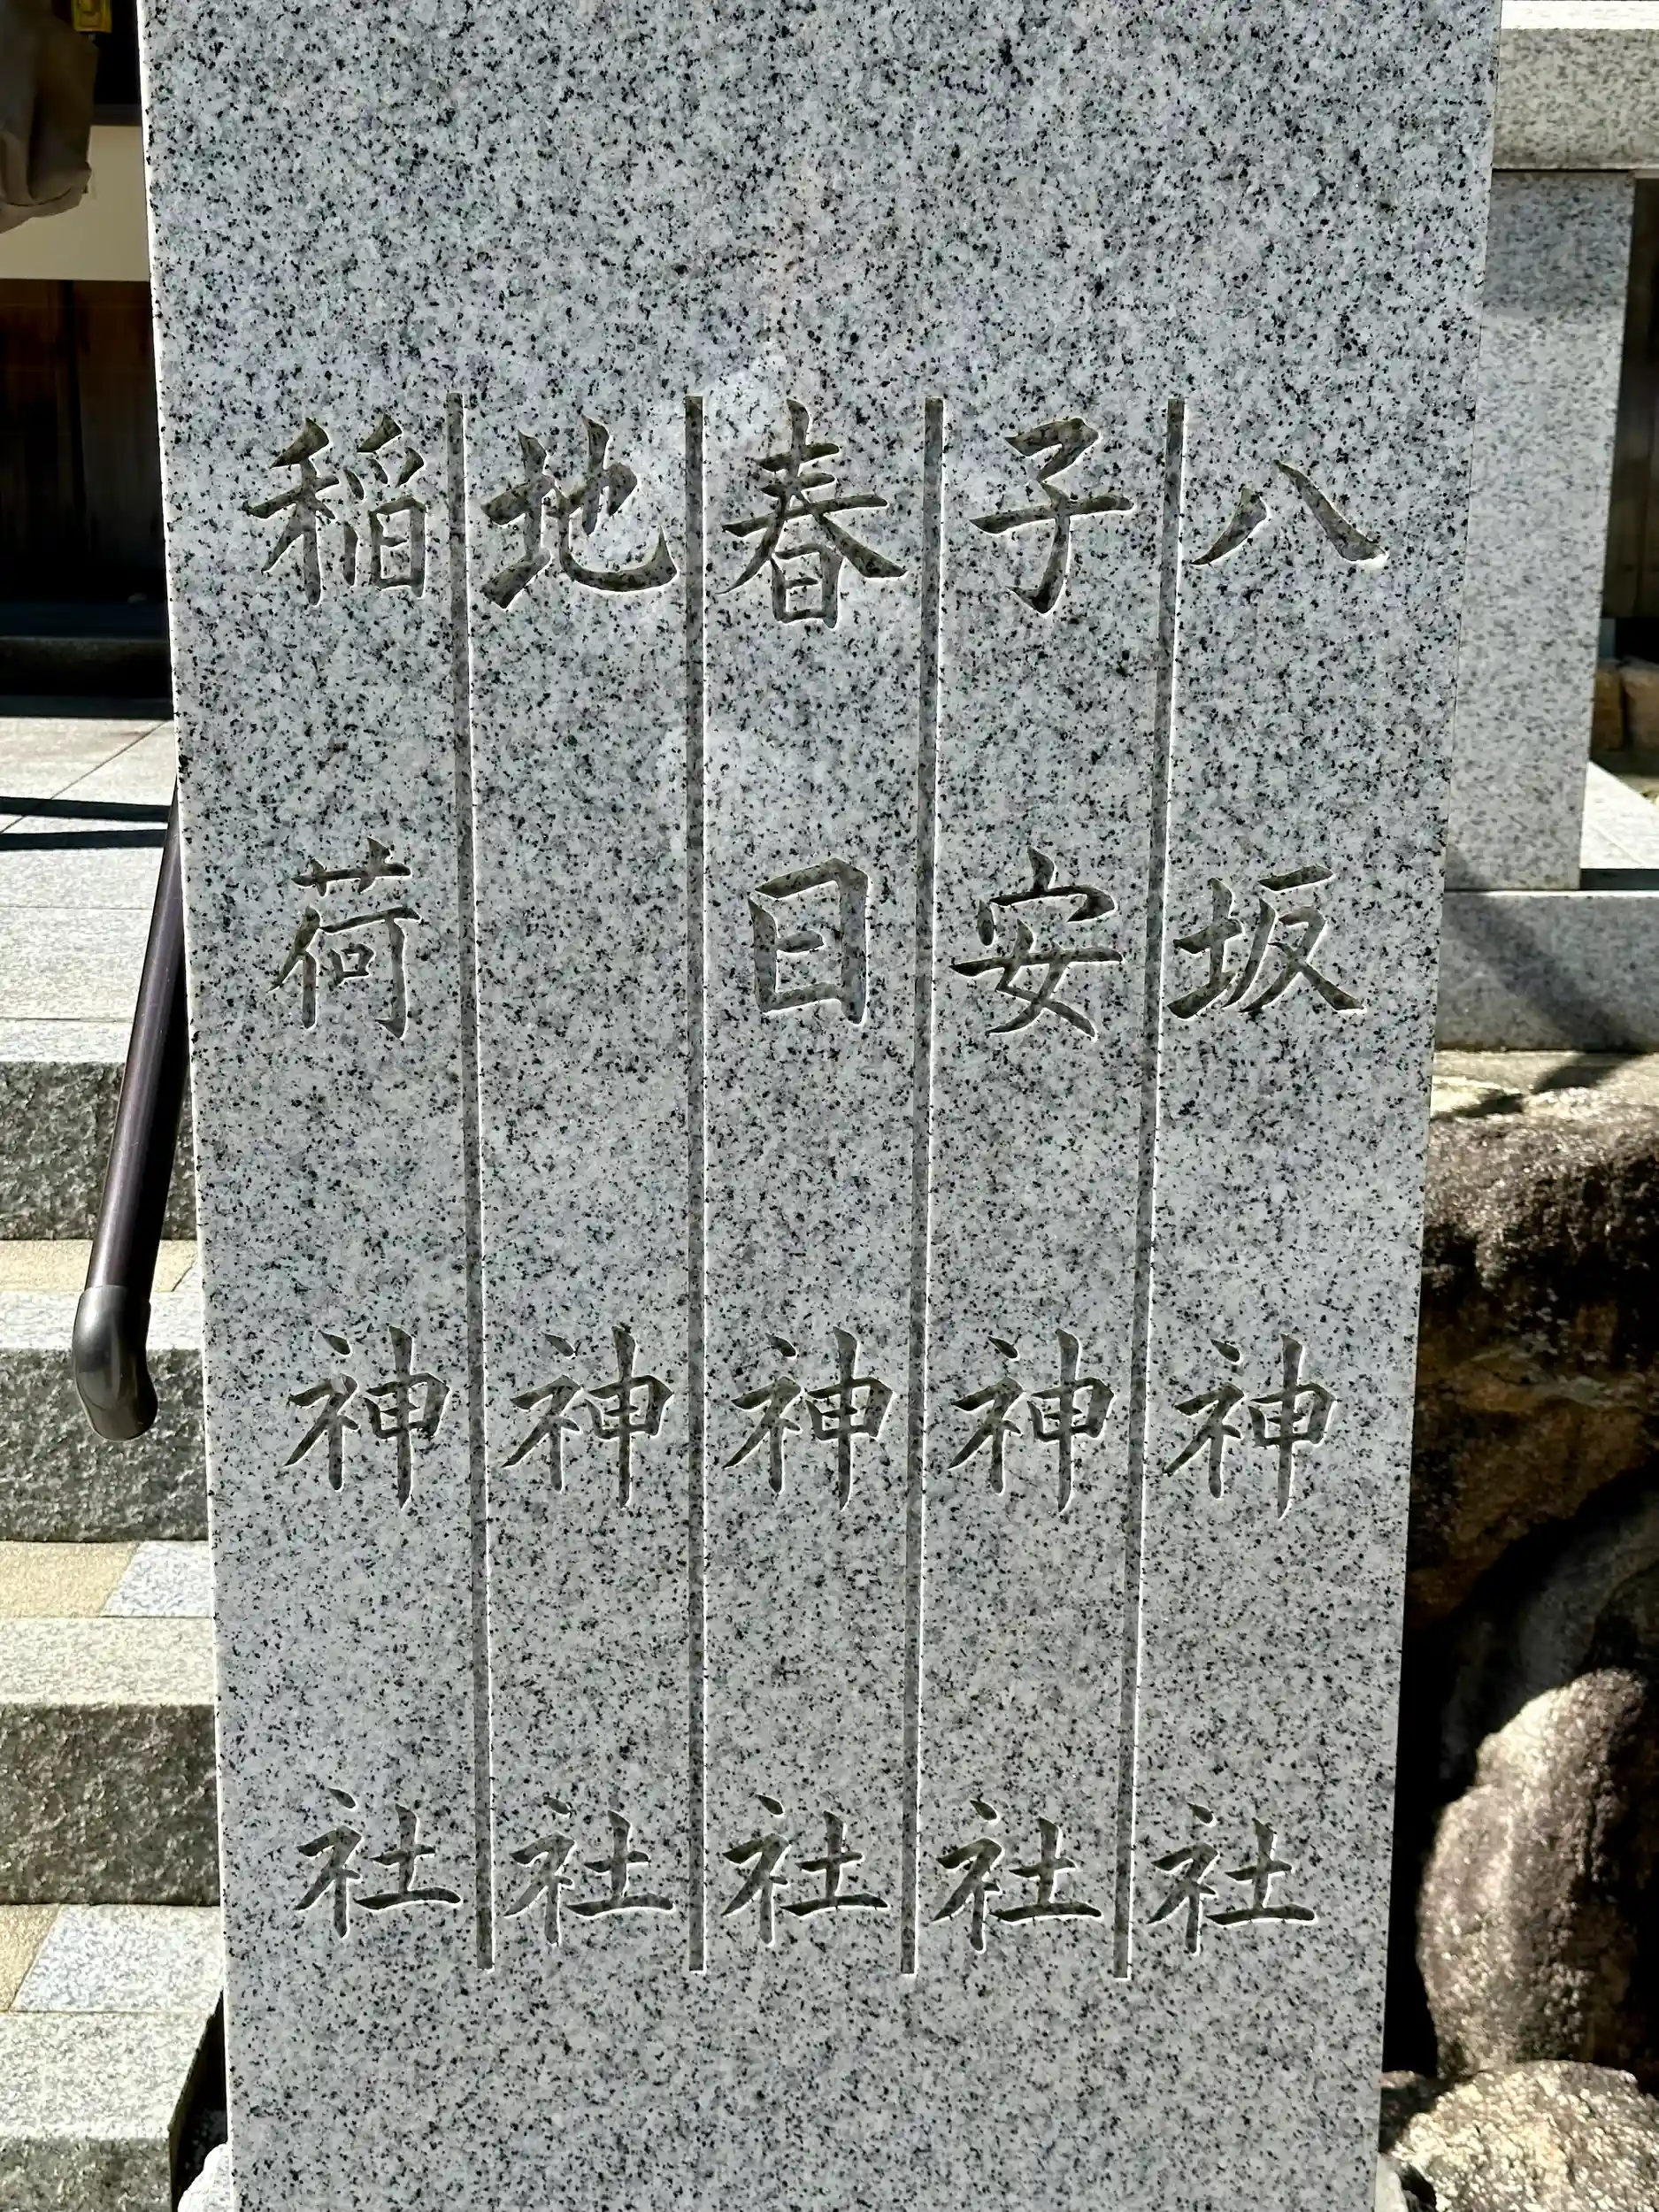 八坂神社
子安神社
春日神社
地神社
稲荷神社